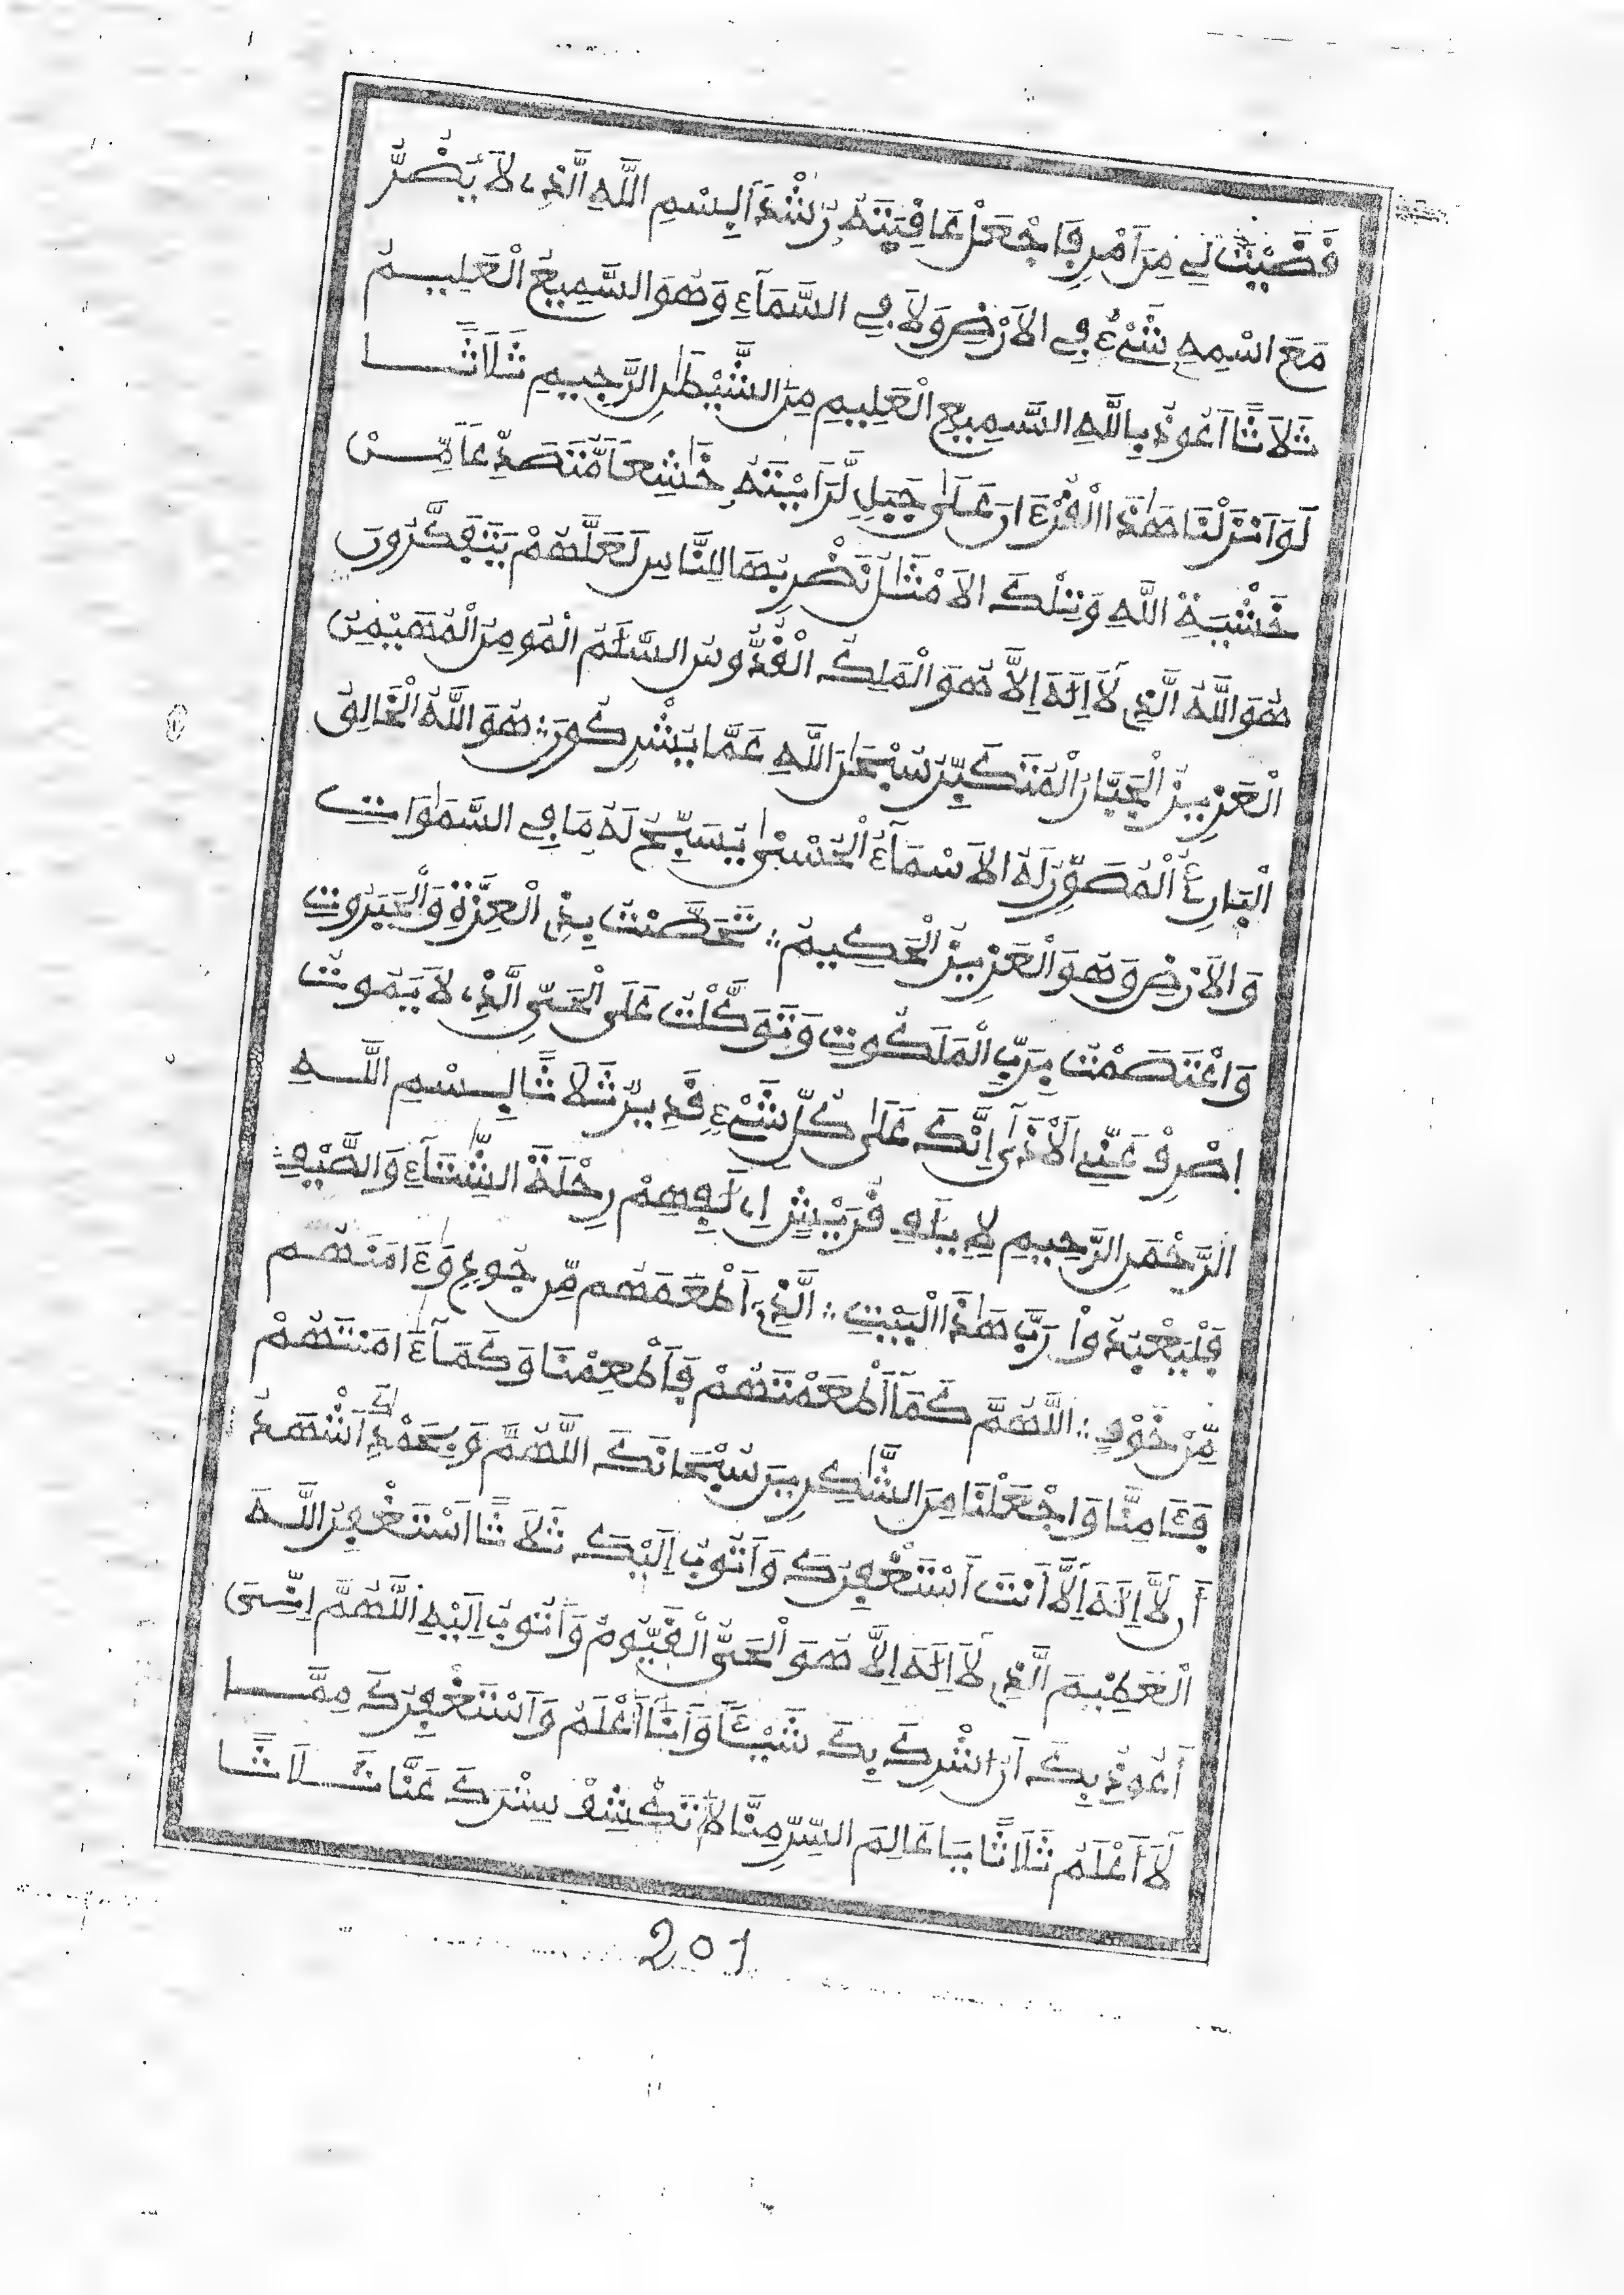 قَضَيْتَ لِي مِنَ اَمْرٍ فَاجْعَلْ عَافِيَتَهُ رُشْدًا بِسْمِ اللَّهِ الَّذِي لَا يَضُرُّ
مَعَ اسْمِهِ شَيْءٌ فِي الَارْضِ وَلَا فِي السَّمَآءِ وَهُوَ السَّمِيعُ الْعَلِيمُ
ثَلَاثًا اَعُوذُ بِاللَّهِ السَّمِيعِ الْعَلِيمِ مِنَ الشَّيْطَٰنِ الرَّجِيمِ ثَلَاثًا
لَوَ اَنزَلْنَا هَٰذَا الْقُرْءَانَ عَلَىٰ جَبَلٍ لَّرَأَيْتَهُ خَٰشِعًا مُّتَصَدِّعًا مِّنْ
خَشْيَةِ اللَّهِ وَتِلْكَ الَامْثَٰلُ نَضْرِبُهَا لِلنَّاسِ لَعَلَّهُمْ يَتَفَكَّرُونَ
هُوَ اللَّهُ الَّذِي لَا إِلَٰهَ إِلَّا هُوَ الْمَلِكُ الْقُدُّوسُ السَّلَٰمُ الْمُومِنُ الْمُهَيْمِنُ
الْعَزِيزُ الْجَبَّارُ الْمُتَكَبِّرُ سُبْحَٰنَ اللَّهِ عَمَّا يُشْرِكُونَ ؞ هُوَ اللَّهُ الْخَالِقُ
الْبَارِئُ الْمُصَوِّرُ لَهُ الَاسْمَآءُ الْحُسْنَىٰ يُسَبِّحُ لَهُ مَا فِي السَّمَٰوَاتِ
وَالَارْضِ وَهُوَ الْعَزِيزُ الْحَكِيمُ ؞ تَحَصَّنْتُ بِذِي الْعِزَّةِ وَالْجَبَرُوتِ
وَاعْتَصَمْتُ بِرَبِّ الْمَلَكُوتِ وَتَوَكَّلْتُ عَلَى الْحَيِّ الَّذِي لَا يَمُوتُ
اِصْرِفْ عَنِّي الَاذَىٰ إِنَّكَ عَلَىٰ كُلِّ شَيْءٍ قَدِيرٌ ثَلَاثًا بِسْمِ اللَّهِ
الرَّحْمَٰنِ الرَّحِيمِ لِإِيلَٰفِ قُرَيْشٍ اِۦلَٰفِهِمْ رِحْلَةَ الشِّتَآءِ وَالصَّيْفِ ؞
فَلْيَعْبُدُواْ رَبَّ هَٰذَا الْبَيْتِ ؞ الَّذِي أَطْعَمَهُم مِّن جُوعٍ وَءَامَنَهُم
مِّنْ خَوْفٍ ؞ اللَّهُمَّ كَمَا أَطْعَمْتَهُمْ فَأَطْعِمْنَا وَكَمَا ءَامَنْتَهُمْ
فَـَٔامِنَّا وَاجْعَلْنَا مِنَ الشَّٰكِرِينَ سُبْحَانَكَ اللَّهُمَّ وَبِحَمْدِكَ أَشْهَدُ
أَن لَّا إِلَٰهَ إِلَّا أَنْتَ أَسْتَغْفِرُكَ وَأَتُوبُ إِلَيْكَ ثَلَاثًا أَسْتَغْفِرُ اللَّهَ
الْعَظِيمَ الَّذِي لَا إِلَٰهَ إِلَّا هُوَ الْحَيُّ الْقَيُّومُ وَأَتُوبُ إِلَيْهِ اللَّهُمَّ إِنِّي
أَعُوذُ بِكَ أَنُ اشْرِكَ بِكَ شَيْـًٔا وَأَنَا أَعْلَمُ وَأَسْتَغْفِرُكَ مِمَّا
لَا أَعْلَمُ ثَلَاثًا يَا عَالِمَ السِّرِّ مِنَّا لَا تَكْشِفْ سِتْرَكَ عَنَّا ثَلَاثًا
201